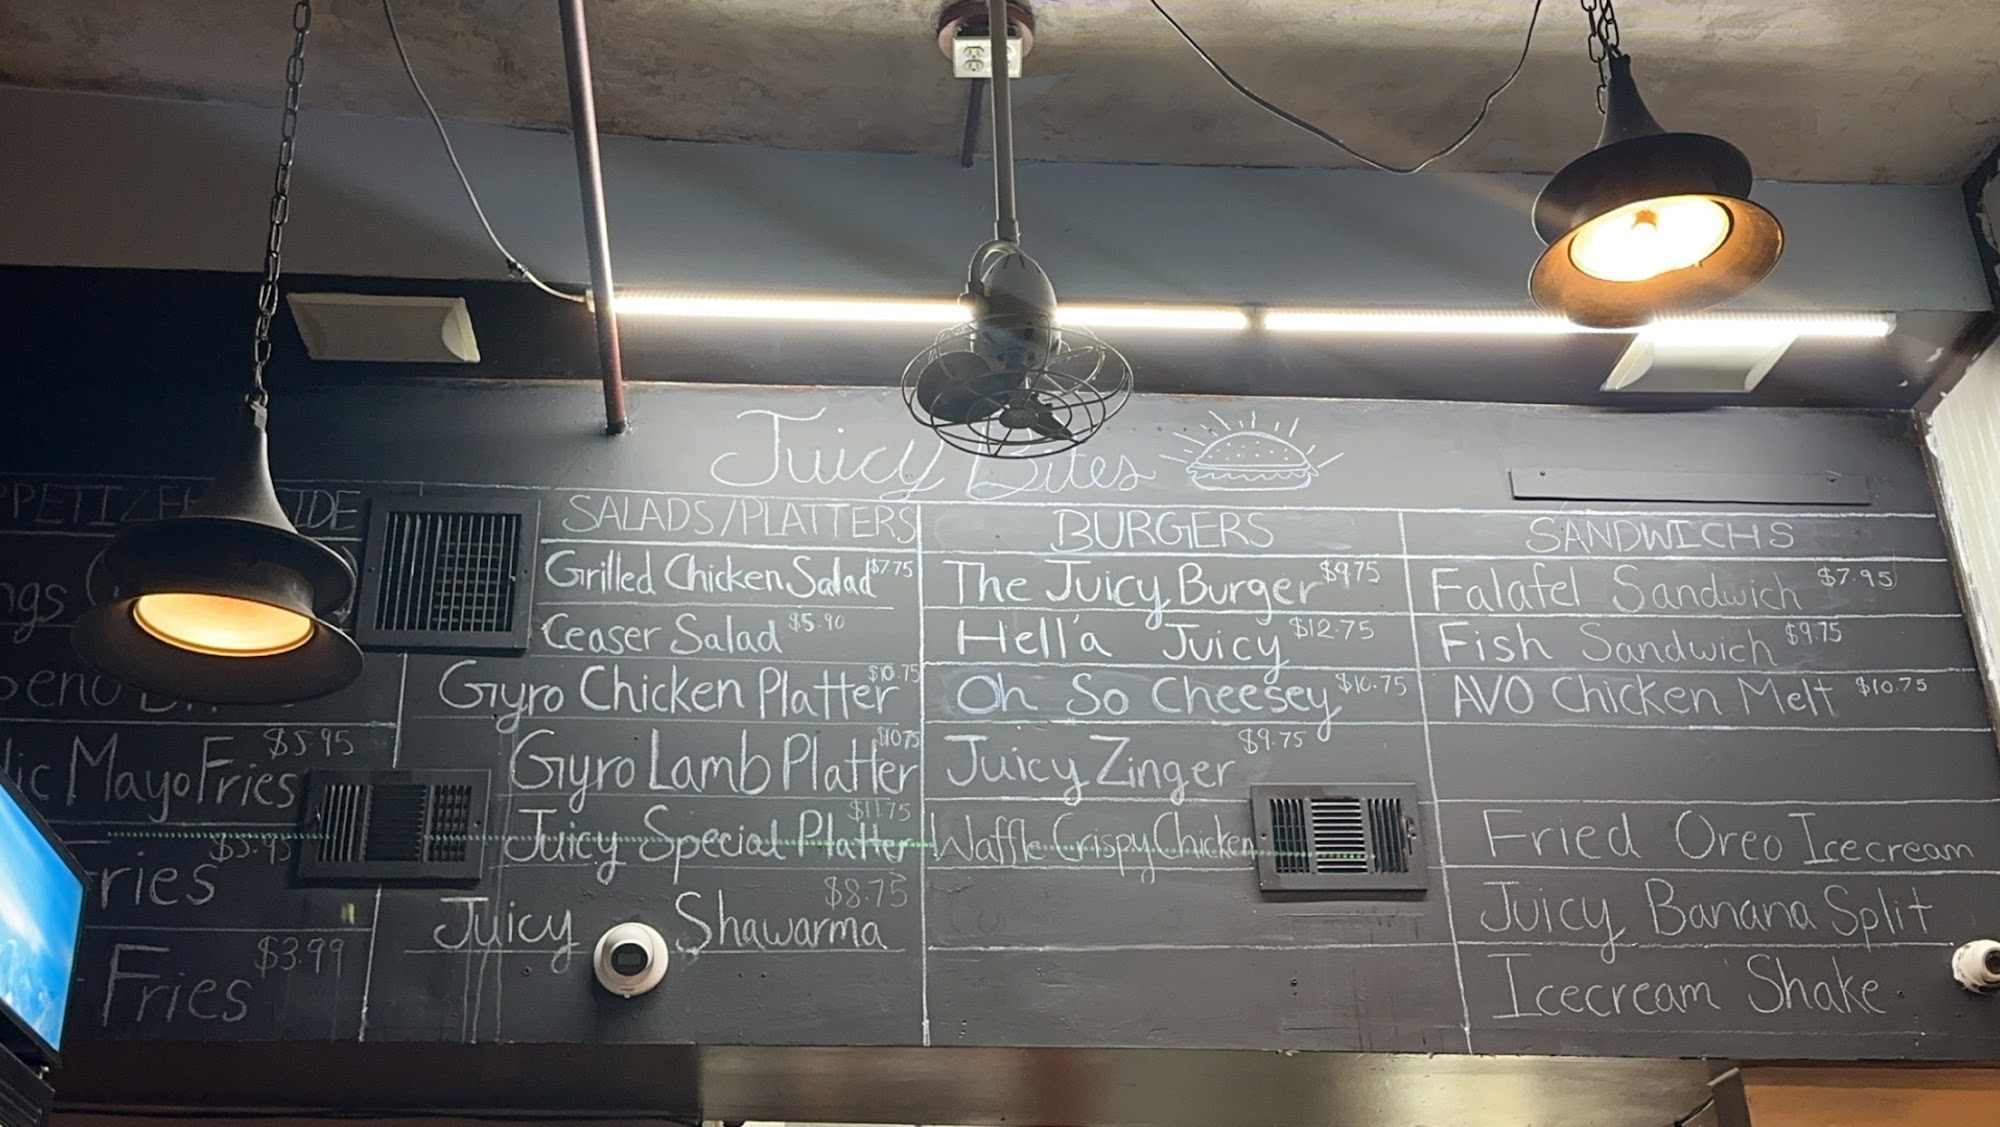 Juicy Bites
SALADS/PLATTERS
Grilled Chicken Salad $7.75
Ceaser Salad $5.90
Gyro Chicken Platter $10.75
Gyro Lamb Platter $10.75
Juicy Special Platter $11.75
Juicy Shawarma $8.75
BURGERS
The Juicy Burger $9.75
Hell'a Juicy $12.75
Oh So Cheesey $10.75
Juicy Zinger $9.75
Waffle Crispy Chicken
SANDWICHS
Falafel Sandwich $7.95
Fish Sandwich $9.75
AVO Chicken Melt $10.75
Fried Oreo Icecream
Juicy Banana Split
Icecream Shake
Mayo Fries $5.95
Fries $3.99